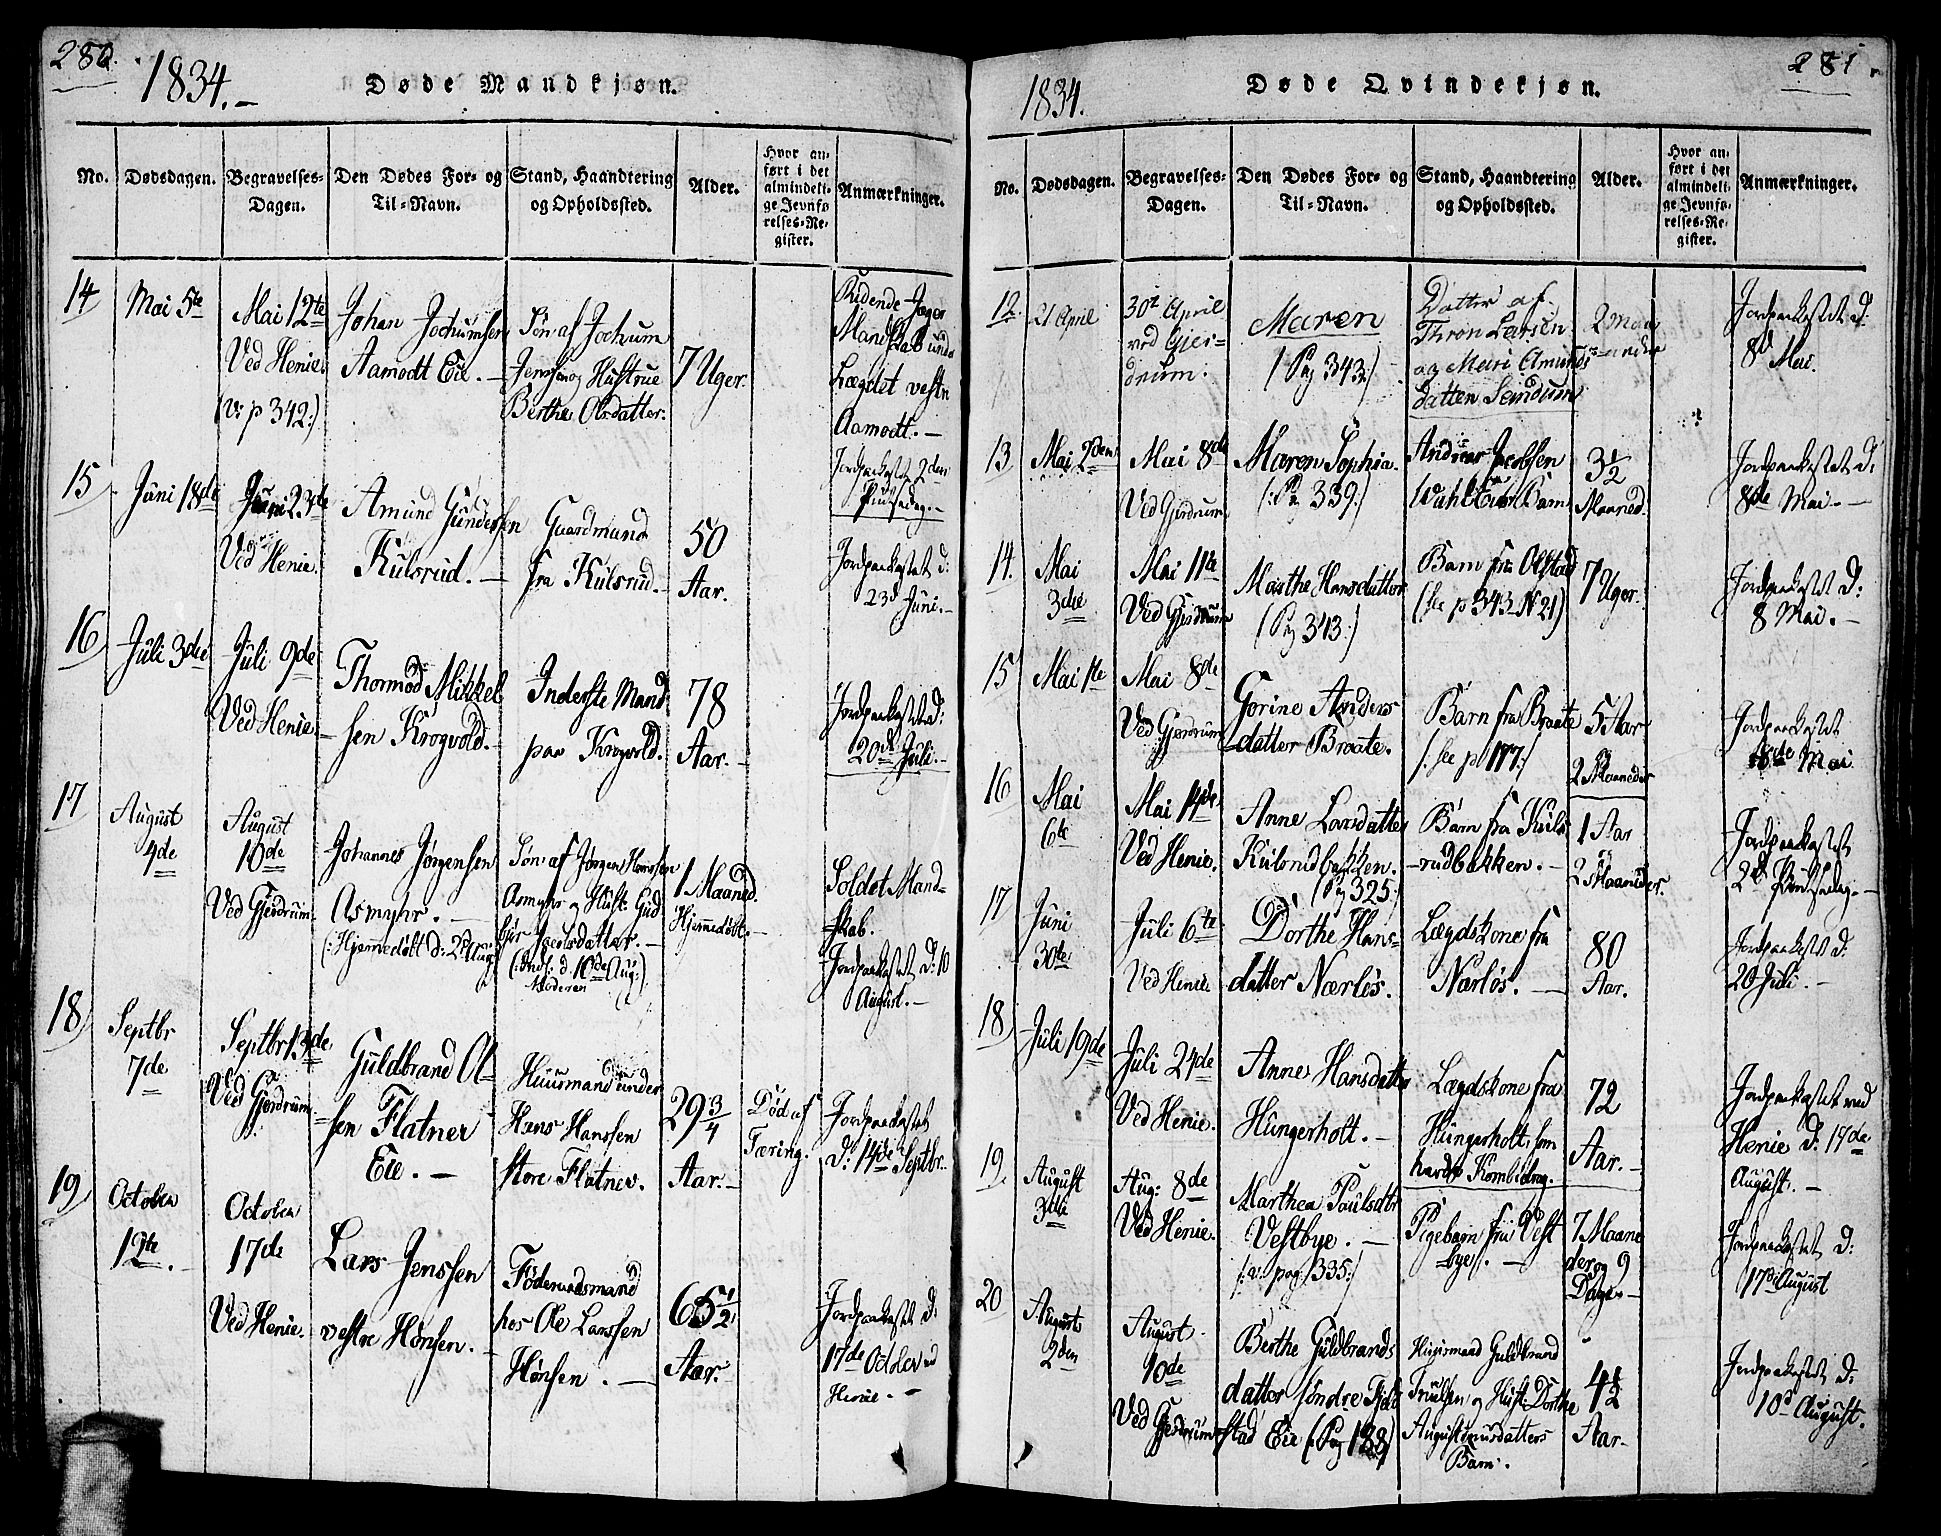 280.
1834.
Døde Mandkjøn.
No.
Dødsdagen.
Begravelses-
Dagen.
Den Dødes For- og
Til-Navn.
Stand, Haandtering
og Opholdssted.
Alder.
Hvor an-
ført i det
almindeli-
ge Jevnfø-
relses-Re-
gister.
Anmærkninger.
14
Mai 5te
Mai 12te
Ved Henie.
(v: p 342:)
Johan Jochumsen
Aamodt Eie. —
Søn af Jochum
Jenssen og Hustrue
Berthe Olsdatter.
7 Uger.
Ridende Jæger
Mandskab under
Lægdet vestre
Aamodt. —
Jordpaakastet 2den
Pintsedag. —
15
Juni 18de
Juni 23de
Ved Henie.
Amund Gundersen
Kulsrud. —
Gaardmand
fra Kulsrud. —
50
Aar.
Jordpaakastet d:
23d Juni. —
16
Juli 3die
Juli 9de
Ved Henie. —
Thormod Mikkel
sen Krogvold. —
Inderste Mand
paa Krogvold.
78
Aar. —
Jordpaakastet d:
20d Juli. —
17
August
4de
August
10de
Ved Gjerdrum.
Johannes Jørgensen
Asmyhr. —
(:Hjemmedøbt d: 2d Aug:)
Søn af Jørgen Hanssen
Asmyhr og Hust: Gud
bjør Jacobsdatter. —
(: Indl: d. 10de Aug:)
Moderen
1 Maaned.
Hjemmedøbt. —
Soldat Mand-
skab.
Jordpaakastet d: 10
August. —
18
Septbr
7de
Septbr 13de
Ved Gjerdrum.
Guldbrand Ol-
sen Flatner
Eie. —
Huusmand under
Hans Hanssen
store Flatner.
29 3/4
Aar. —
Død af
Tæring.
Jordpaakastet
d: 14de Septbr.
19
October
12te.
October
17de
Ved Henie.
Lars Jenssen
vestre Hønsen. —
Föderaadsmand
hos Ole Larssen
Hønsen. —
65 1/2
Aar.
Jordpaakastet d:
17de October ved
Henie. —
281.
1834.
Døde Qvindekjøn.
No.
Dødsdagen.
Begravelses-
Dagen.
Den Dødes For- og
Til-Navn.
Stand, Haandtering
og Opholdssted.
Alder.
Hvor an-
ført i det
almindeli-
ge Jevnfø-
relses-Re-
gister.
Anmærkninger.
12.
21 April
30te April
ved Gjer-
drum.
Maren
(Pag 343:)
Datter af
Thron Larsen
og Mari Amunds-
datter Seindum
2 Maa
neder
Jordpaakastet d:
8d Mai.
13
Mai 2den
Mai 8de
Ved Gjerdrum
Maren Sophia.
(: Pag 339:)
Andreas Jacobsen
Wahl Eies Barn
3 1/2
Maaned.
Jordpaakastet d:
8de Mai. —
14.
Mai
3die
Mai 11te
Ved Gjerdrum
Marthe Hansdatter
(Pag 343:)
Barn fra Olstad
(see p 343 N 21)
7 Uger.
Jordpaakastet d:
8 Mai. —
15
Mai 1te
Mai 8de
Ved Gjerdrum
Gorine Anders
datter Braate.
Barn fra Braate
(: see p 177:)
5 Aar
2 Maaneder
Jordpaakastet
8de Mai
16
Mai
6te
Mai 14de
Ved Henie.
Anne Larsdatter
Kulsrudbakken.
(Pag 325:)
Barn fra Kuls
-rudbakken. —
1 Aar
2 Maaneder.
Jordpaakastet
2d Pintsedag. —
17
Juni
30te
Juli 6te
Ved Henie.
Dorthe Hans-
datter Nærløs.
Lægdskone fra
Nærløs. —
80
Aar.
Jordpaakastet d:
20 Juli. —
18
Juli 19de
Juli 24de
Ved Henie.
Anne Hansdatter
Hungerholt. —
Lægdskone fra
Hungerholt, som
havde Kornbidrag.
72
Aar. —
Jordpaakastet ved
Henie d. 17de
August. —
19.
August
3die
Aug: 8de
Ved Henie.
Marthea Paulsdtr
Vestbye. —
(: v: pag: 335:)
Pigebarn fra Vest
bye. —
7 Maane
der og 9
Dage. —
Jordpaakastet d:
17de August
20
August
2den
August
10de
Ved Gjerdrum
Berthe Guldbrands
datter søndre Fjel
stad Eie (Pag 188)
Huusmand Guldbrand
Truelsen og Hust: Dorthe
Augustinusdatters
Barn.
4 1/2
Aar.
Jordpaakastet d:
10d August.